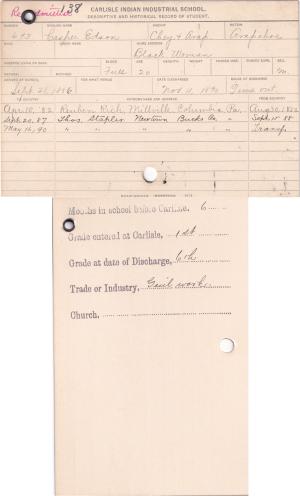 Readmitted 138
CARLISLE INDIAN INDUSTRIAL SCHOOL.
DESCRIPTIVE AND HISTORICAL RECORD OF STUDENT.
NUMBER ENGLISH NAME AGENCY NATION
Casper Edson Chey & Arap Arapahoe
INDIAN NAME HOME ADDRESS
Black Woman
BLOOD AGE HEIGHT WEIGHT SEX
Full 20 M.
FOR WHAT PERIOD DATE DISCHARGED CAUSE OF DISCHARGE
Sept. 21, 1886 Nov. 11, 1890 Time out
TO COUNTRY PATRONS NAME AND ADDRESS FROM COUNTRY
Apr. 18, '82 Reuben Rich, Millville, Columbia Pa. Aug 30, 1882
Sept. 20. 87 Thos. Stapler Newtown Bucks Co. " Sept. 15 88
May 16, 90 " " " " " Transf.
Months in school before Carlisle, 6
Grade entered at Carlisle, 1st
Grade at date of Discharge, 6th
Trade or Industry,
Church,